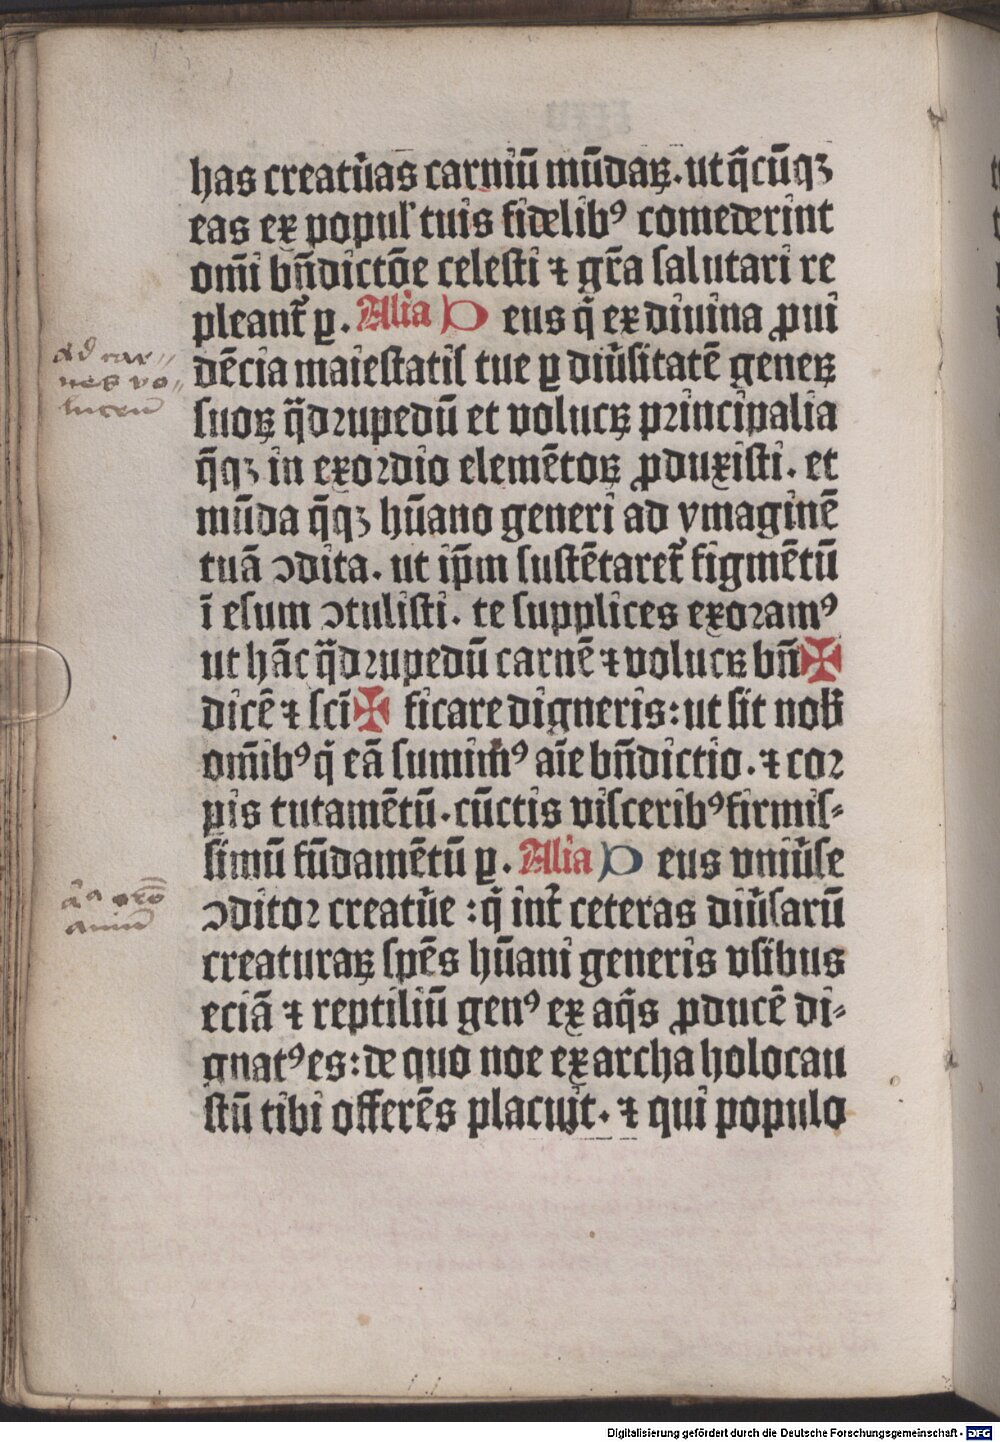 has creatũas carniũ mũdaꝝ. ut q̃cũqꝫ
eas ex popul' tuis fidelibꝰ comederint
om̃i bñdictõe celesti ⁊ gr̃a ſalutari re
pleant᷑ ꝑ. Alia Deus q̃ ex diuina ꝓui
dẽcia maieſtatiſ tue ꝑ diũſitatẽ geneꝝ
ſuoꝝ q̃dꝛupedũ et volucꝝ principalia
q̃qꝫ in exoꝛdio elemẽtoꝝ ꝓduxiſti. et
mũda q̃qꝫ hũano generi ad ymaginẽ
tuã ꝯdita. ut ip̃m ſuſtẽtaret᷑ figmẽtũ
ĩ eſum ꝯtuliſti. te ſupplices exoꝛamꝰ
ut hãc q̃dꝛupedũ carnẽ ⁊ volucꝝ bñ✠
dicẽ ⁊ ſcĩ✠ ficare digneris: ut ſit nob̃
om̃ibꝰ q̃ eã ſumim̃ꝰ aĩe bñdictio. ⁊ coꝛ
pis tutamẽtũ. cũctis viſceribꝰ firmiſ⸗
ſimũ fũdamẽtũ ꝑ. Alia Deus vniũſe
ꝯditoꝛ creatũe : q̃ int̃ ceteras diũſarũ
creaturaꝝ ſpẽs hũani generis vſibus
eciã ⁊ reptiliũ genꝰ ex aq̃s ꝓducẽ di⸗
gnatꝰ es: de quo noe ex archa holocau
ſtũ tibi offerẽs placuit. ⁊ qui populo
ad car⸗
nes vo⸗
lucrũ
Digitalisierung gefördert durch die Deutsche Forschungsgemeinschaft - DFG